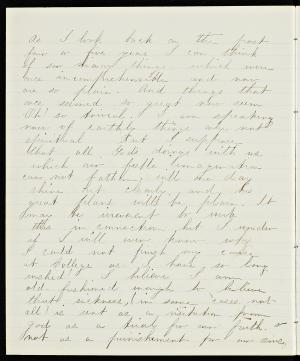 As I look back on the past
four or five years I can think
of so many things which were
once incomprehensible and now
are so plain. And things that
once seemed so great now seem
Oh! so trivial. I am speaking
now of earthly things, not
spiritual. But I suppose
that all God's doings with us
which our feeble imagination
can not fathom, will one day
shine out clearly, and his
great plans will be plain. It
may be irreverent to write
this in connection but I wonder
if I will ever know why
I could not finish my course
at College as I have so long
wished. I believe I am
old fashioned enough to believe
that sickness, in some cases, not
all! is sent as a visitation from
God as a trial for our faith, &
not as a punishment for our sins,